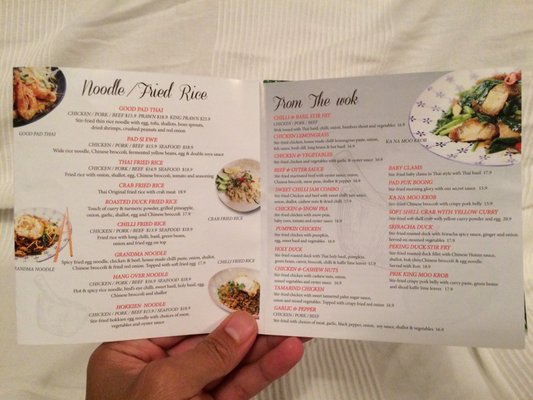 Noodle / Fried Rice
GOOD PAD THAI
CHICKEN / PORK / BEEF $15.9 PRAWN $18.9 KING PRAWN $21.9
Stir fried thin rice noodle with egg, tofu, shallots, bean sprouts,
dried shrimps, crushed peanuts and red onion.
GOOD PAD THAI
PAD SI EWE
CHICKEN / PORK / BEEF $15.9 SEAFOOD $18.9
Wide rice noodle, Chinese broccoli, fermented yellow beans, egg & double soya sauce
THAI FRIED RICE
CHICKEN / PORK / BEEF $15.9 SEAFOOD $18.9
Fried rice with onion, shallot, egg, Chinese broccoli, tomato and seasoning
CRAB FRIED RICE
Thai Original fried rice with crab meat 18.9
ROASTED DUCK FRIED RICE
Touch of curry & turmeric powder, grilled pineapple,
onion, garlic, shallot, egg and Chinese broccoli 17.9
CRAB FRIED RICE
CHILLI FRIED RICE
CHICKEN / PORK / BEEF $15.9 SEAFOOD $18.9
Fried rice with long chilli, basil, green beans,
onion and fried egg on top
GRANDMA NOODLE
Spicy fried egg noodle, chicken & beef, home made chilli paste, onion, shallot,
Chinese broccoli & fried red onion. Topped with soft fried egg 17.9
ANDMA NOODLE
HANG OVER NOODLE
CHICKEN / PORK / BEEF $16.9 SEAFOOD $18.9
Hot & spicy rice noodle, bird's eye chilli, sweet basil, holy basil, egg,
Chinese broccoli and shallot
CHILLI FRIED RICE
HOKKIEN NOODLE
CHICKEN / PORK / BEEF $15.9 SEAFOOD $18.9
Stir fried hokkien egg noodle with choices of meat,
vegetables and oyster sauce
From The wok
CHILLI & BASIL STIR FRY
CHICKEN / PORK / BEEF
Wok tossed with Thai basil, chilli, onion, bamboo shoot and vegetables 16.9
CHICKEN LEMONGRASS
Stir fried chicken, home made chilli lemongrass paste, onion,
fish sauce, fresh chilli, long beans & hot basil 16.9
CHICKEN & VEGETABLES
Stir fried chicken and vegetables with garlic & oyster sauce 16.9
BEEF & OYTER SAUCE
Stir fried beef with oyster sauce, onion,
Chinese broccoli, snow peas, shallot & pepper 16.9
SWEET CHILLI JAM COMBO
Stir fried Chicken and beef with sweet chilli jam sauce,
onion, shallot, cashew nuts & dried chilli 17.9
CHICKEN & SNOW PEA
Stir fried chicken with snow pea,
baby corn, tomato and oyster sauce 16.9
PUMPKIN CHICKEN
Stir fried chicken with pumpkin,
egg, sweet basil and vegetables 16.9
HOLY DUCK
Stir fried roasted duck with Thai holy basil, pumpkin,
green beans, onion, broccoli, chilli & kaffir lime leave 17.9
CHICKEN & CASHEW NUTS
Stir fried chicken with cashew nuts, onion,
mixed vegetables and oyster sauce 16.9
TAMARIND CHICKEN
Stir fried chicken with sweet tamarind palm sugar sauce,
onion and mixed vegetables. Topped with crispy fried red onion 16.9
GARLIC & PEPPER
CHICKEN / PORK / BEEF
Stir fried with choices of meat, garlic, black pepper, onion, soy sauce, shallot & vegetables 16.9
KA NA MOO KROB
BABY CLAMS
Stir fried baby clams in Thai style with Thai basil 17.9
PAD PUK BOONG
Stir fried morning glory with our secret sauce 15.9
KA NA MOO KROB
Stir fried Chinese broccoli with crispy pork belly 17.9
SOFT SHELL CRAB WITH YELLOW CURRY
Stir fried soft shell crab with yellow curry powder and egg 20.9
SRIRACHA DUCK
Stir fried roasted duck with Sriracha spicy sauce, ginger and onion.
Served on mustard vegetables 17.9
PEKING DUCK STIR FRY
Stir fried roasted duck fillet with Chinese Hoisin sauce,
shallot, bok choy, Chinese broccoli & egg noodle
PRIK KING MOO KROB
Stir fried crispy pork belly with curry paste, green beans
and sliced kaffir lime leaves 17.9